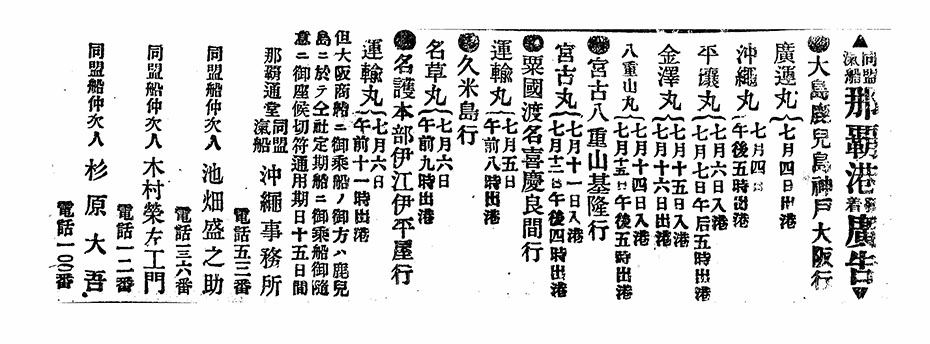 ▲同盟汽船那覇港發着廣告▼
●大島鹿兒島神戸大阪行
廣運丸 七月四日出港
沖繩丸 七月四日午後五時出港
平壤丸 七月六日入港 七月七日午后五時出港
金澤丸 七月十五日入港 七月十六日出港
八重山丸 七月十四日入港 七月十五日午後五時出港
●宮古八重山基隆行
宮古丸 七月十一日入港 七月十二日午後四時出港
●粟國渡名喜慶良間行
運輸丸 七月五日午前八時出港
●久米島行
名草丸 七月六日午前九時出港
●名護本部伊江伊平屋行
運輸丸 七月六日午前十一時出港
但大阪商船ニ御乘船ノ御方ハ鹿兒
島ニ於テ仝社定期船ニ御乘船御隨
意ニ御座候切符通用期日十五日間
那覇通堂 同盟汽船 沖繩事務所
電話五三番
同盟船仲次人 池畑盛之助
電話三六番
同盟船仲次人 木村榮左工門
電話一二番
同盟船仲次人 杉原大吾
電話一〇〇番